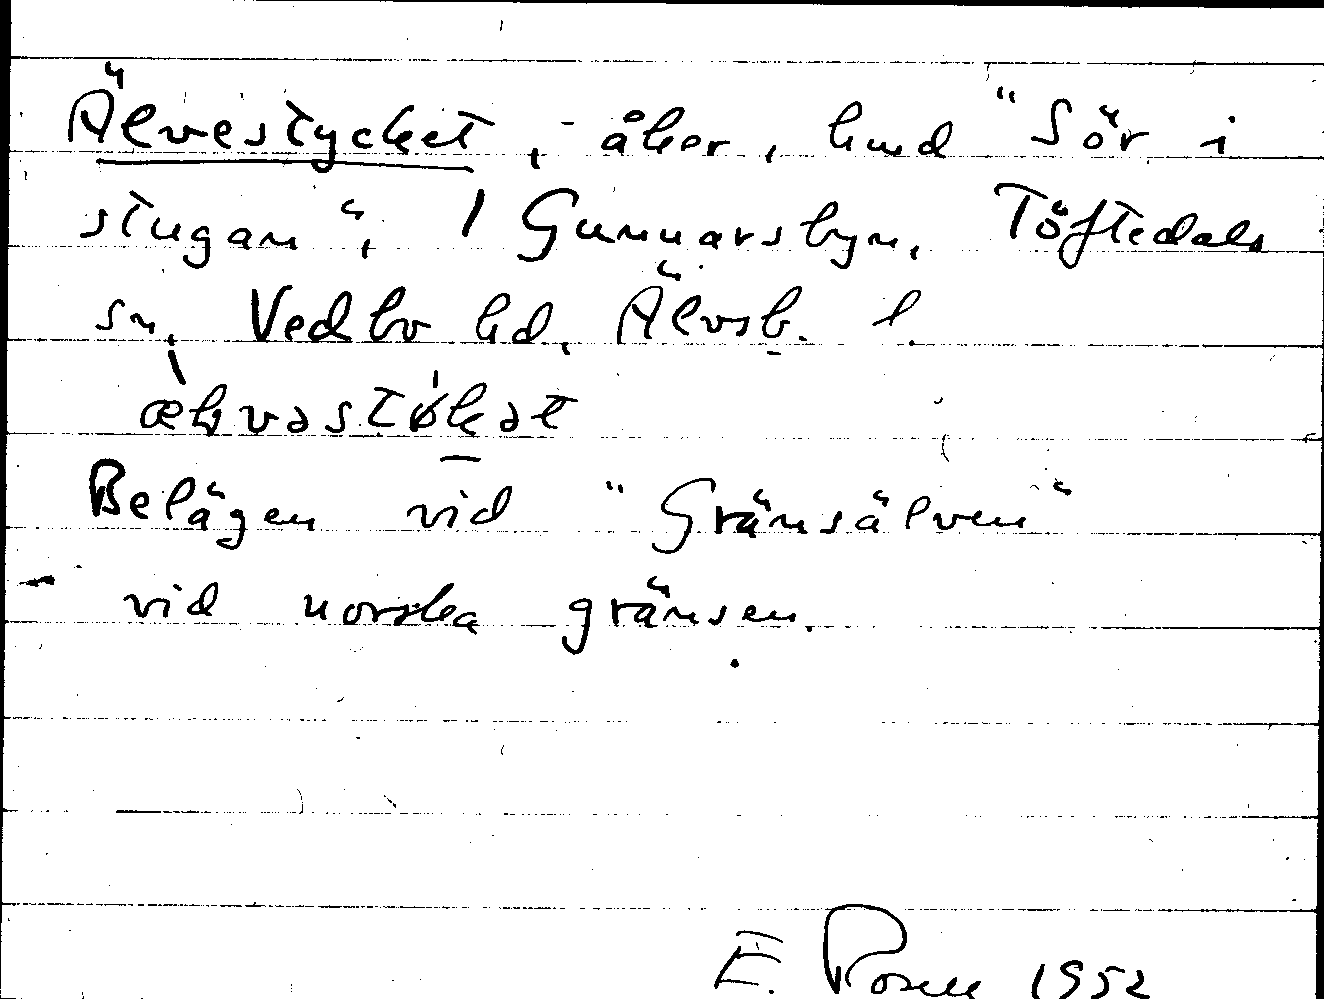 Älvestycket, åker, hmd "Sör i
stugan", 1 Gunnarsbyn, Töftedals
sn, Vedbo hd, Älvsb. l.
Belägen vid "Gränsälven"
vid norska gränsen.
E. Rosen 1952